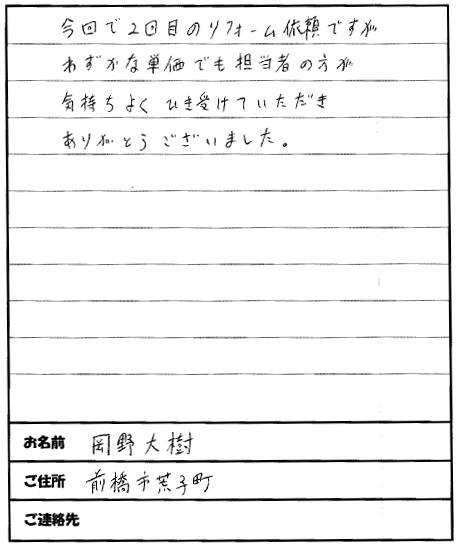 今回で2回目のリフォーム依頼ですが
わずかな単価でも担当者の方が
気持ちよくひき受けていただき
ありがとうございました。
お名前 岡野大樹
ご住所 前橋市荒子町
ご連絡先